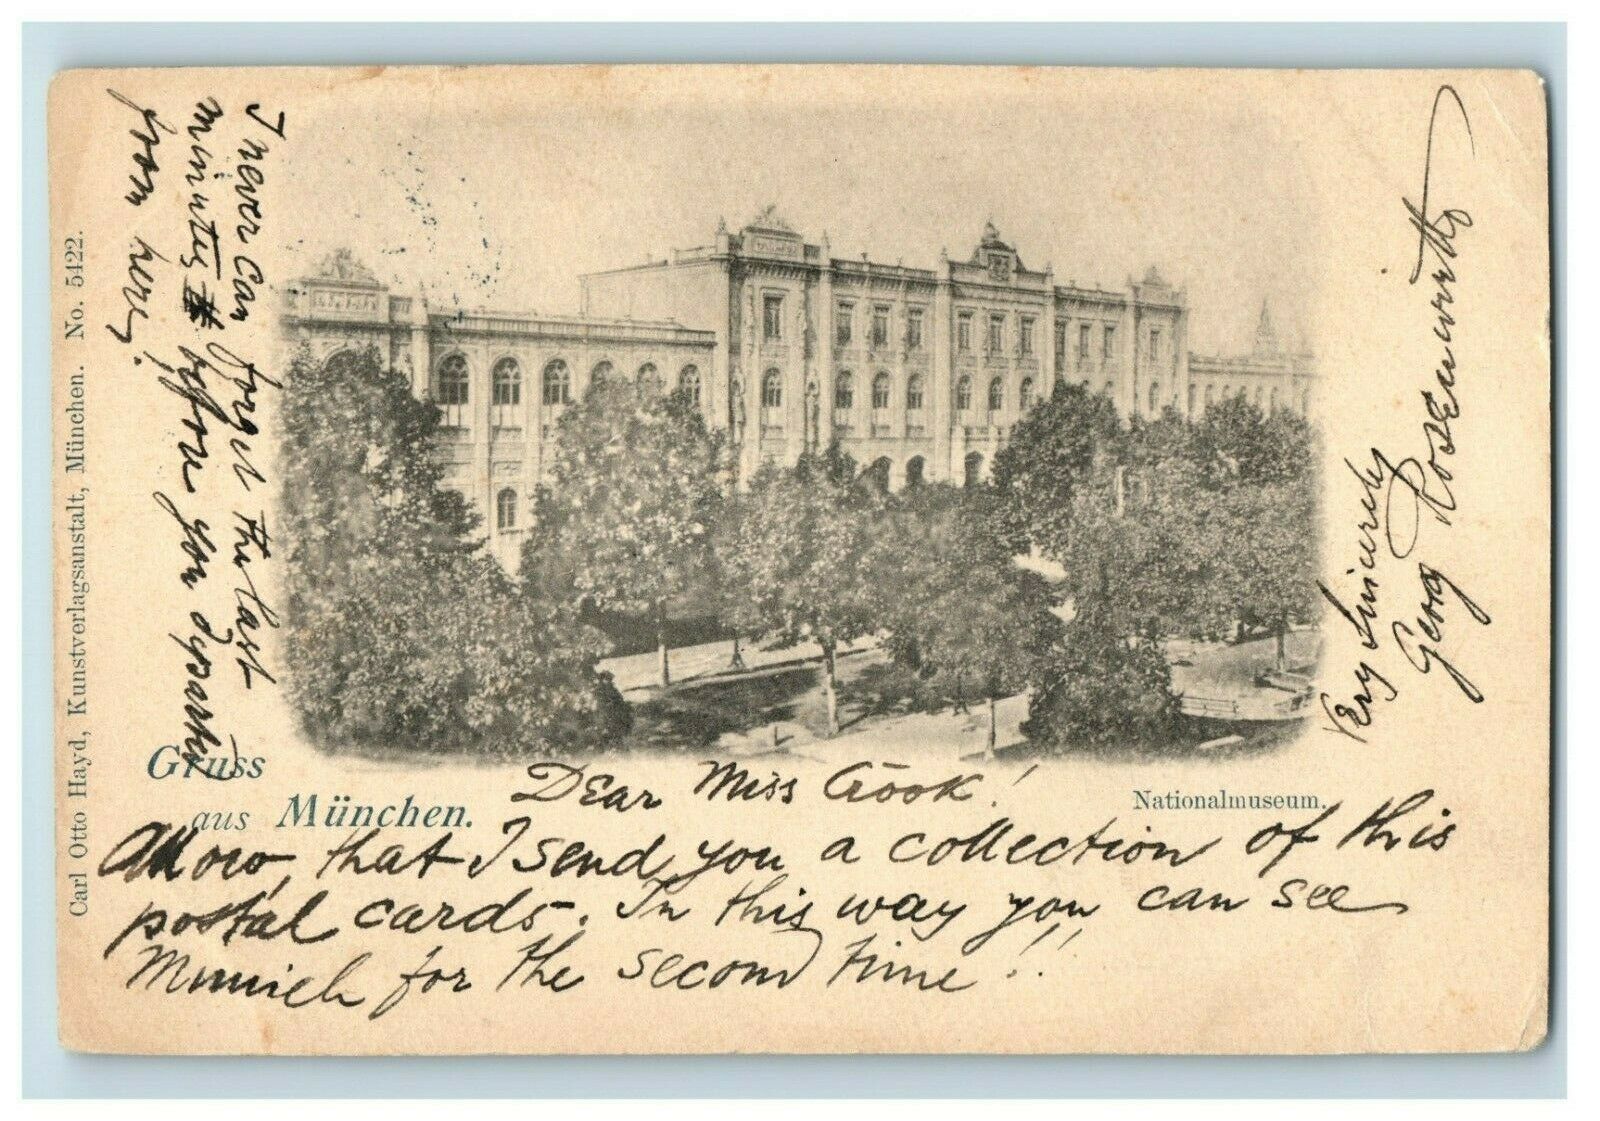 Carl Otto Hayd, Kunstverlagsanstalt, München. No. 5422.
Gruss
aus München.
Nationalmuseum.
Dear Miss Cook!
Allow, that I send you a collection of this
postal cards. In this way you can see
Munich for the second time!!
I never can forget the last
minutes before you departed
from here!
Very Sincerely
Georg